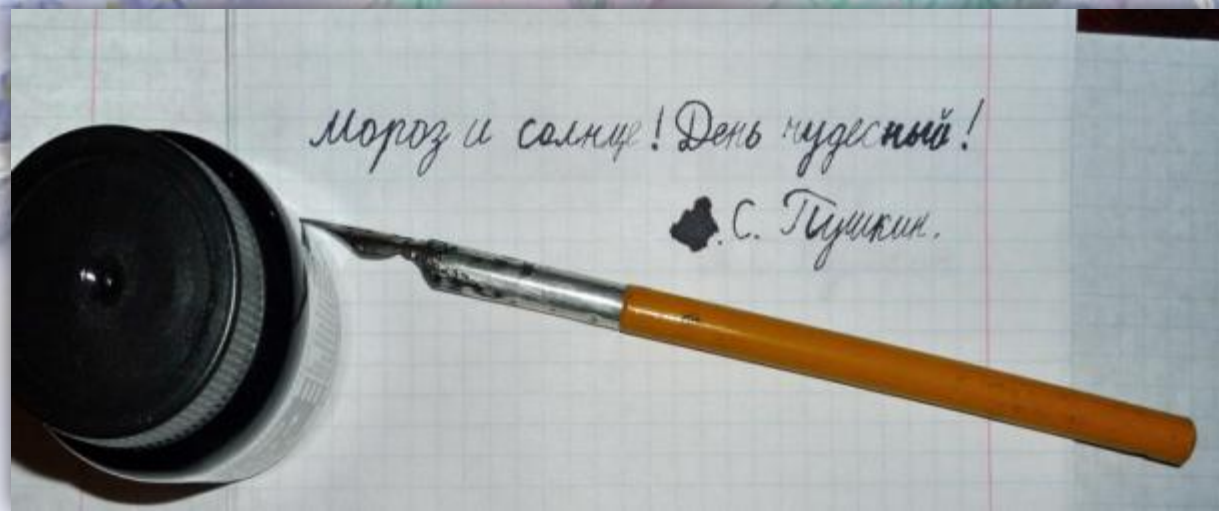 Мороз и солнце! День чудесный!
. С. Пушкин.